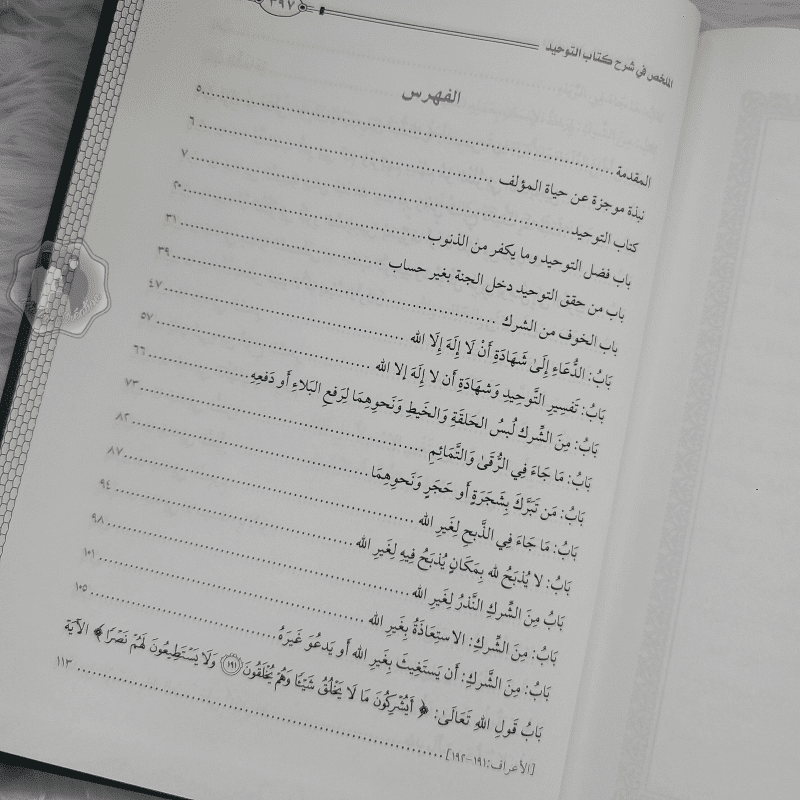 ٣٩٧
الملخص في شرح كتاب التوحيد
الفهرس
المقدمة ................ ٥
نبذة موجزة عن حياة المؤلف ................ ٦
كتاب التوحيد ................ ٧
باب فضل التوحيد وما يكفر من الذنوب ................ ٢٠
باب من حقق التوحيد دخل الجنة بغير حساب ................ ٣١
باب الخوف من الشرك ................ ٣٩
بَابُ: الدُّعَاءِ إِلَىٰ شَهَادَةِ أَنْ لَا إِلَهَ إِلَا الله ................ ٤٧
بَابُ: تَفسِيرِ التَّوحِيدِ وَشَهَادَةِ أَن لا إِلَهَ إلا الله ................ ٥٧
بَابُ: مِنَ الشِّرك لُبسُ الحَلقَةِ وَالخَيطِ وَنَحوِهِمَا لِرَفعِ البَلاءِ أَو دَفعِهِ ................ ٦٦
بَابُ: مَا جَاءَ فِي الرُّقَىٰ وَالتَّمَائِمِ ................ ٧٣
بَابُ: مَن تَبَرَّكَ بِشَجَرَةٍ أَو حَجَرٍ وَنَحوِهِمَا ................ ٨٢
بَابُ: مَا جَاءَ فِي الذَّبحِ لِغَيرِ الله ................ ٨٧
بَابُ: لا يُذبَحُ لله بِمَكَانٍ يُذبَحُ فِيهِ لِغَيرِ الله ................ ٩٤
بَابُ مِنَ الشِّركِ النَّذرُ لِغَيرِ الله ................ ٩٨
بَابُ: مِنَ الشِّركِ: الاستِعَاذَةُ بِغَيرِ الله ................ ١٠١
بَابُ: مِنَ الشِّركِ: أَن يَستَغِيثَ بِغَيرِ الله أَو يَدعُوَ غَيرَهُ ................ ١٠٥
بَابُ قَولِ اللهِ تَعَالَىٰ: ﴿ أَيُشْرِكُونَ مَا لَا يَخْلُقُ شَيْئًا وَهُمْ يُخْلَقُونَ ١٩١ وَلَا يَسْتَطِيعُونَ لَهُمْ نَصْرًا ﴾ الآيَة
[الأعراف: ١٩١-١٩٢] ................ ١١٣